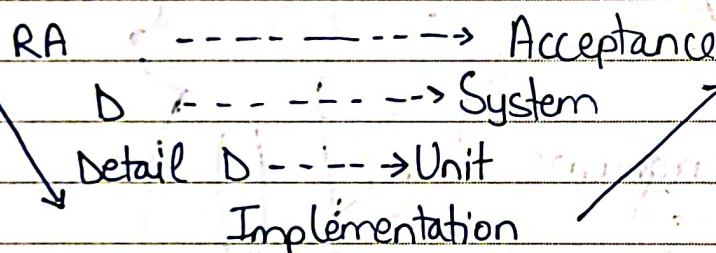 RA Acceptance
D System
Detail D Unit
Implémentation